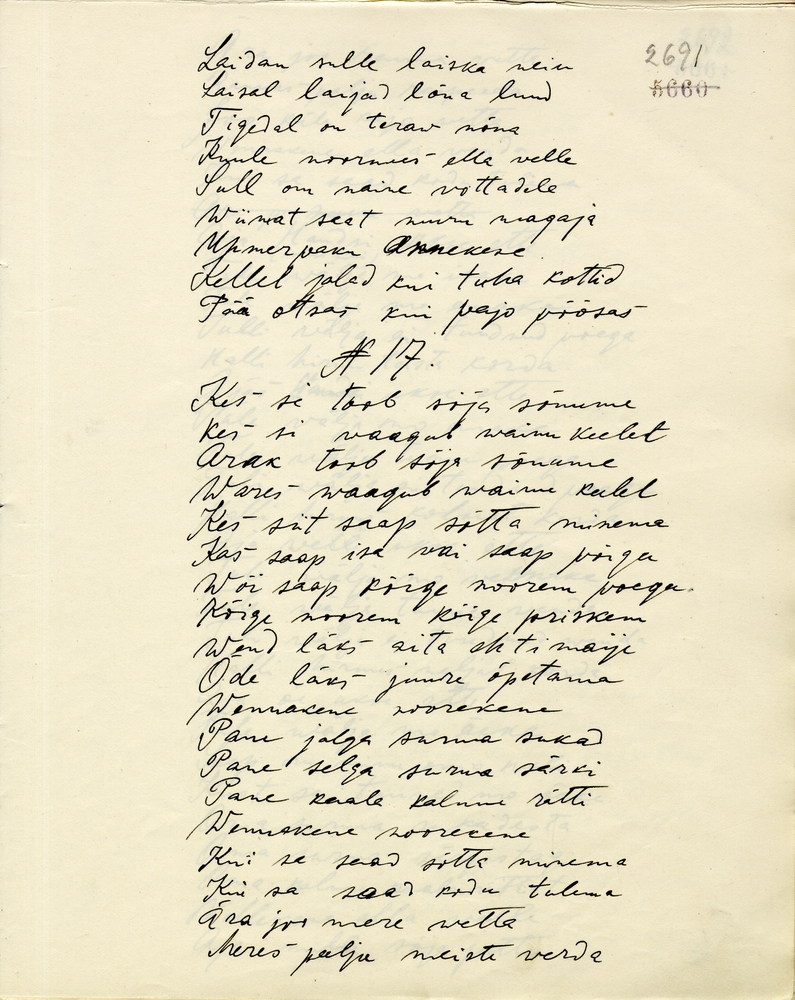 2691
5660
Laidan sulle laiska neiu
Laisal laijad lõua luud
Tigedal on teraw nõna
Kuule noormees ella velle
Sull om naine vottadele
Wiimat seat nuuru magaja
Upmerpaku Annekese
Kellel jalad kui tuha kottid
Pää otsas kui pajo põõsas
№ 17.
Kes se toob sõja sõnume
Kes si vaagub wainu keelel
Arak toob sõja sõnume
Wares waagub wainu keelel
Kes siit saap sõtta minema
Kas saap isa või saap põiga
Wõi saap kõige noorem poega.
Kõige noorem kõige priskem
Wend läks aita ehtimaije
Õde läks juure õpetama
Wennakene noorekene
Pane jalga surma sukad
Pane selga surma särki
Pane kaala kalmu rätti
Wennakene noorekene
Kui sa saad sõtta minema
Kui sa saad kodu tulema
Ära joo mere wetta
Meres palju meiste verda